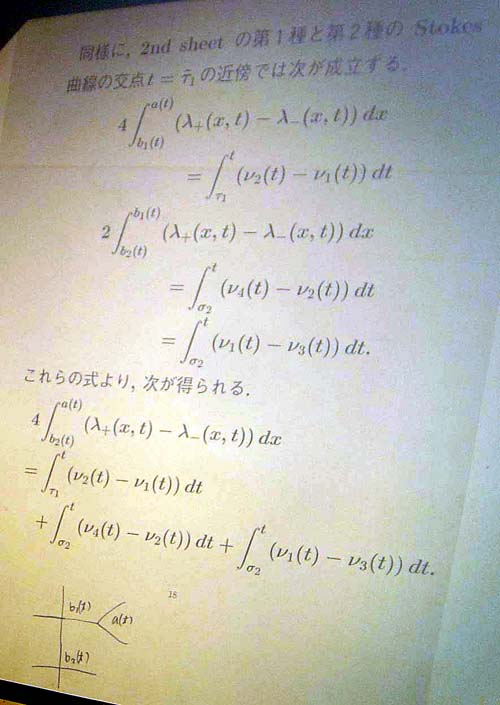 同様に, 2nd sheet の第1種と第2種の Stokes
曲線の交点 t = τ̃₁ の近傍では次が成立する.
4∫_{b₁(t)}^{a(t)} (λ₊(x, t) − λ₋(x, t)) dx
= ∫_{τ₁}^{t} (ν₂(t) − ν₁(t)) dt
2∫_{b₂(t)}^{b₁(t)} (λ₊(x, t) − λ₋(x, t)) dx
= ∫_{σ₂}^{t} (ν₄(t) − ν₂(t)) dt
= ∫_{σ₂}^{t} (ν₁(t) − ν₃(t)) dt.
これらの式より, 次が得られる.
4∫_{b₂(t)}^{a(t)} (λ₊(x, t) − λ₋(x, t)) dx
= ∫_{τ₁}^{t} (ν₂(t) − ν₁(t)) dt
+ ∫_{σ₂}^{t} (ν₄(t) − ν₂(t)) dt + ∫_{σ₂}^{t} (ν₁(t) − ν₃(t)) dt.
18
b₁(t)
a(t)
b₂(t)